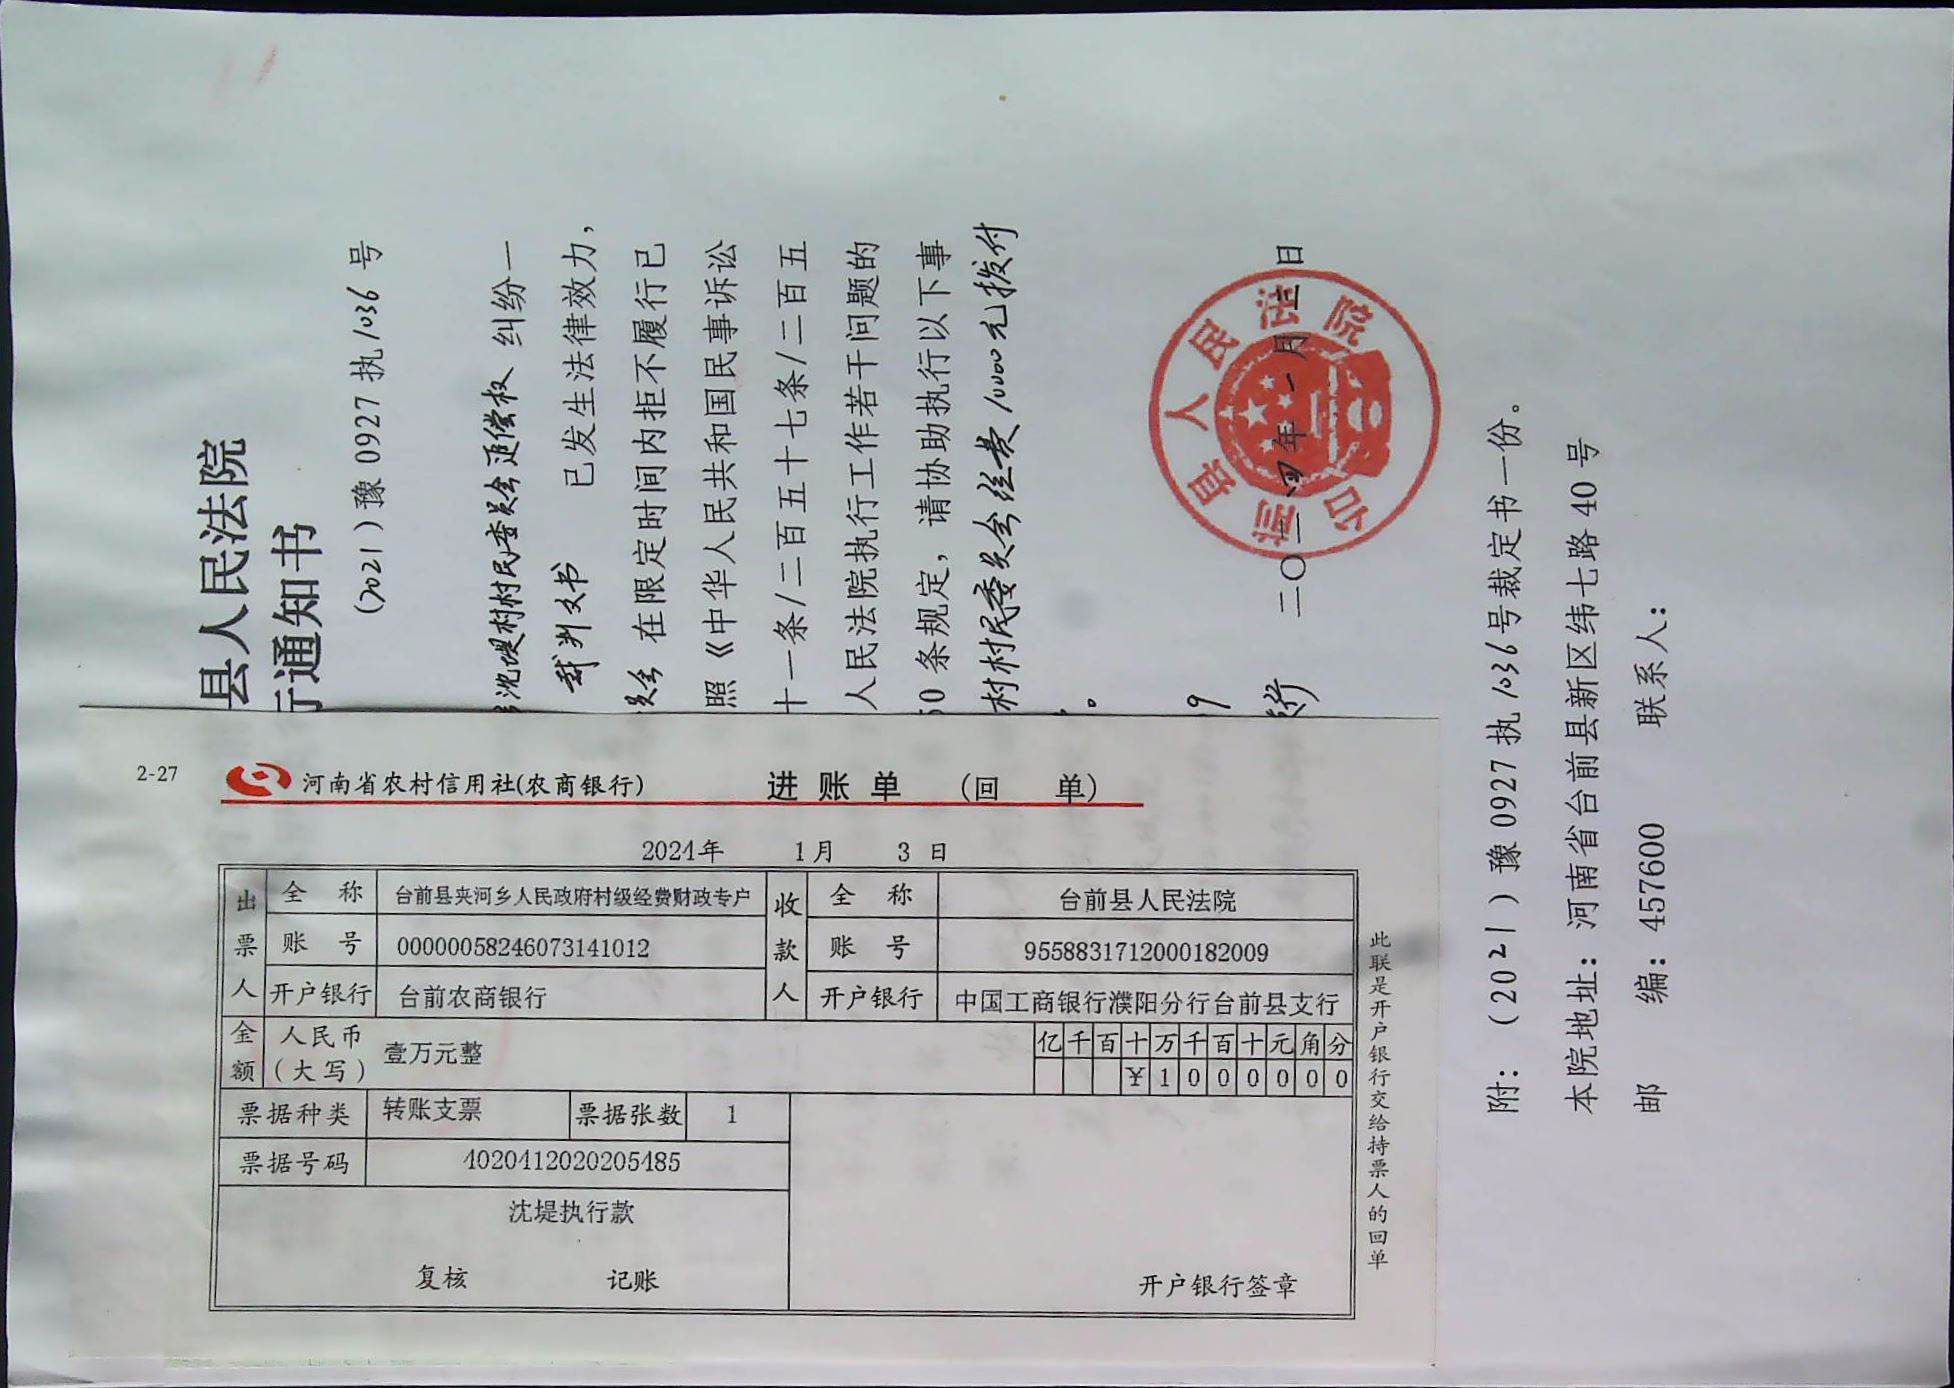 县人民法院
行通知书
（2021）豫0927执1036号
沈堤村村民委员会追偿权 纠纷一
裁判文书 已发生法律效力，
员会 在限定时间内拒不履行已
照《中华人民共和国民事诉讼
十一条/二百五十七条/二百五
人民法院执行工作若干问题的
50条规定，请协助执行以下事
村村民委员会经费10000元拨付
。
9
行
二〇二四年一月三日
台前县人民法院
附：（2021）豫0927执1036号裁定书一份。
本院地址：河南省台前县新区纬七路40号
邮 编：457600 联系人：
2-27 河南省农村信用社(农商银行) 进账单 (回 单)
2024年 1月 3日
出票人 全称 台前县夹河乡人民政府村级经费财政专户 收款人 全称 台前县人民法院
账号 00000058246073141012 账号 9558831712000182009
开户银行 台前农商银行 开户银行 中国工商银行濮阳分行台前县支行
金额 人民币（大写） 壹万元整 亿千百十万千百十元角分
¥1000000
票据种类 转账支票 票据张数 1
票据号码 4020412020205485
沈堤执行款
复核 记账 开户银行签章
此联是开户银行交给持票人的回单